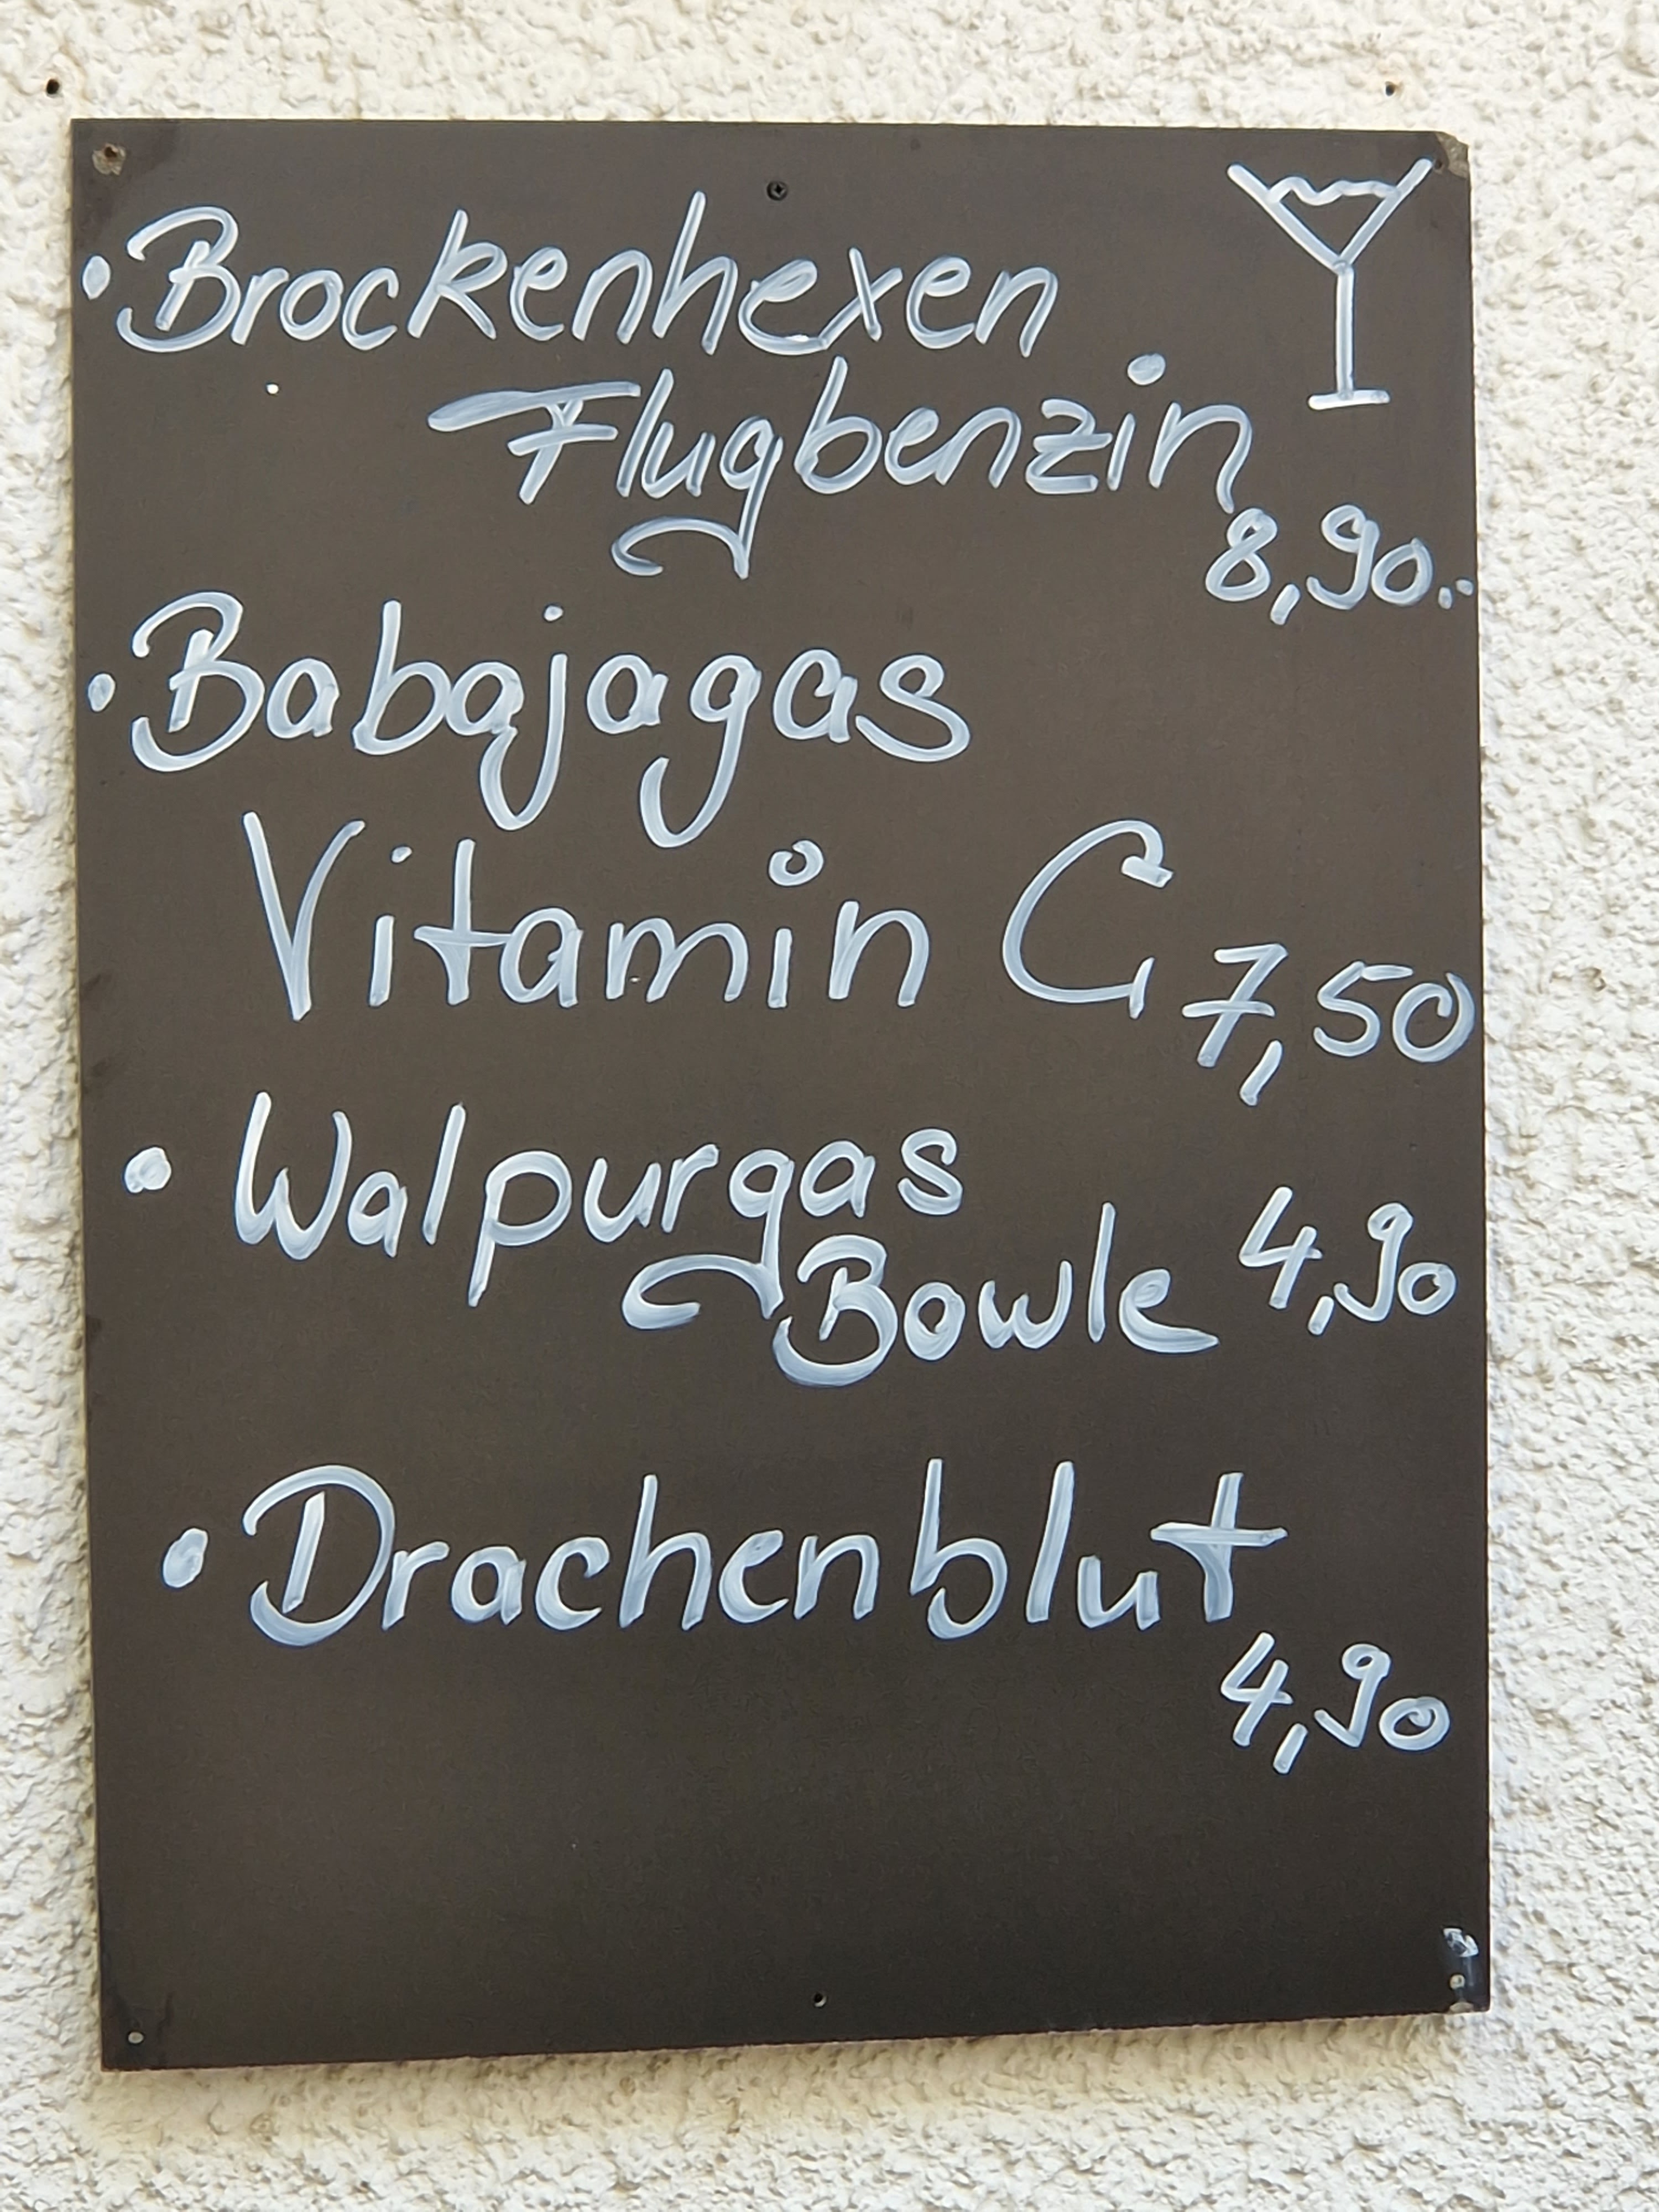 • Brockenhexen
Flugbenzin
8,90..
• Babajagas
Vitamin C 7,50
• Walpurgas
Bowle 4,90
• Drachenblut
4,90